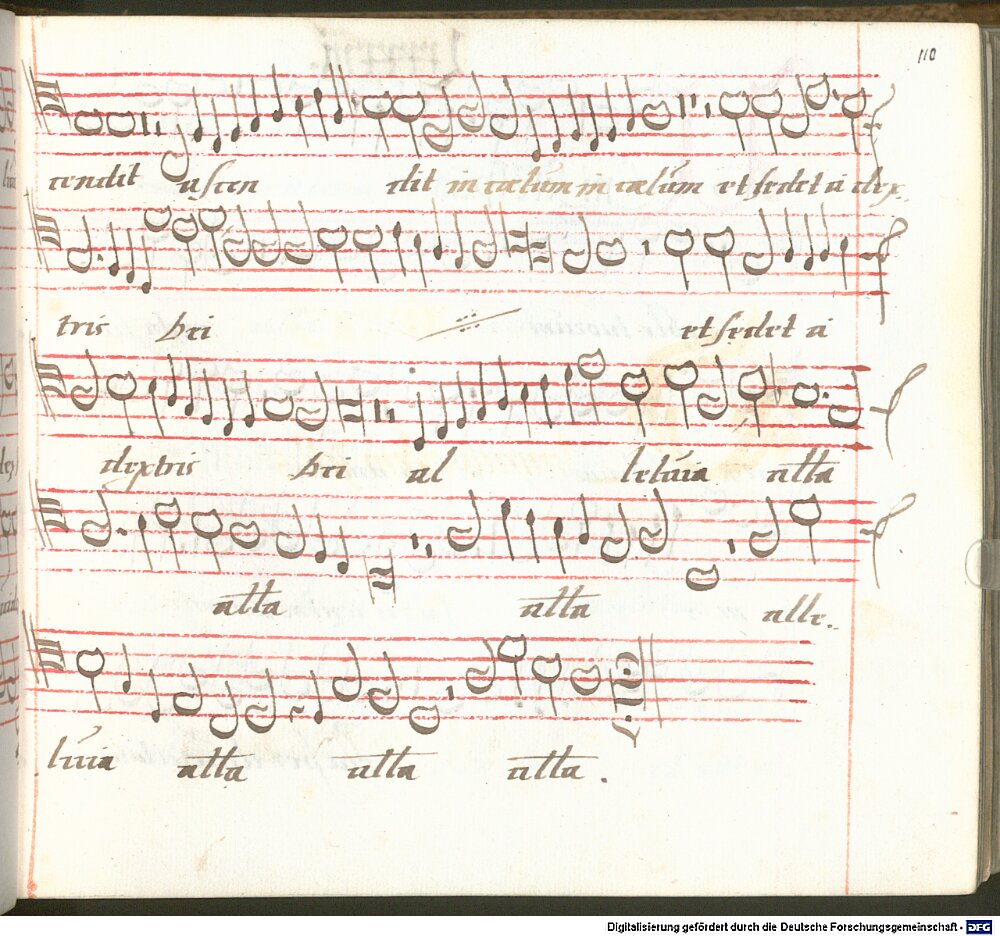 110
cendit ascen dit in cælum in cælum et sedet a dex
tris Dei et sedet a
dextris Dei al leluia alla
alla alla alle.
luia alla alla alla.
Digitalisierung gefördert durch die Deutsche Forschungsgemeinschaft - DFG